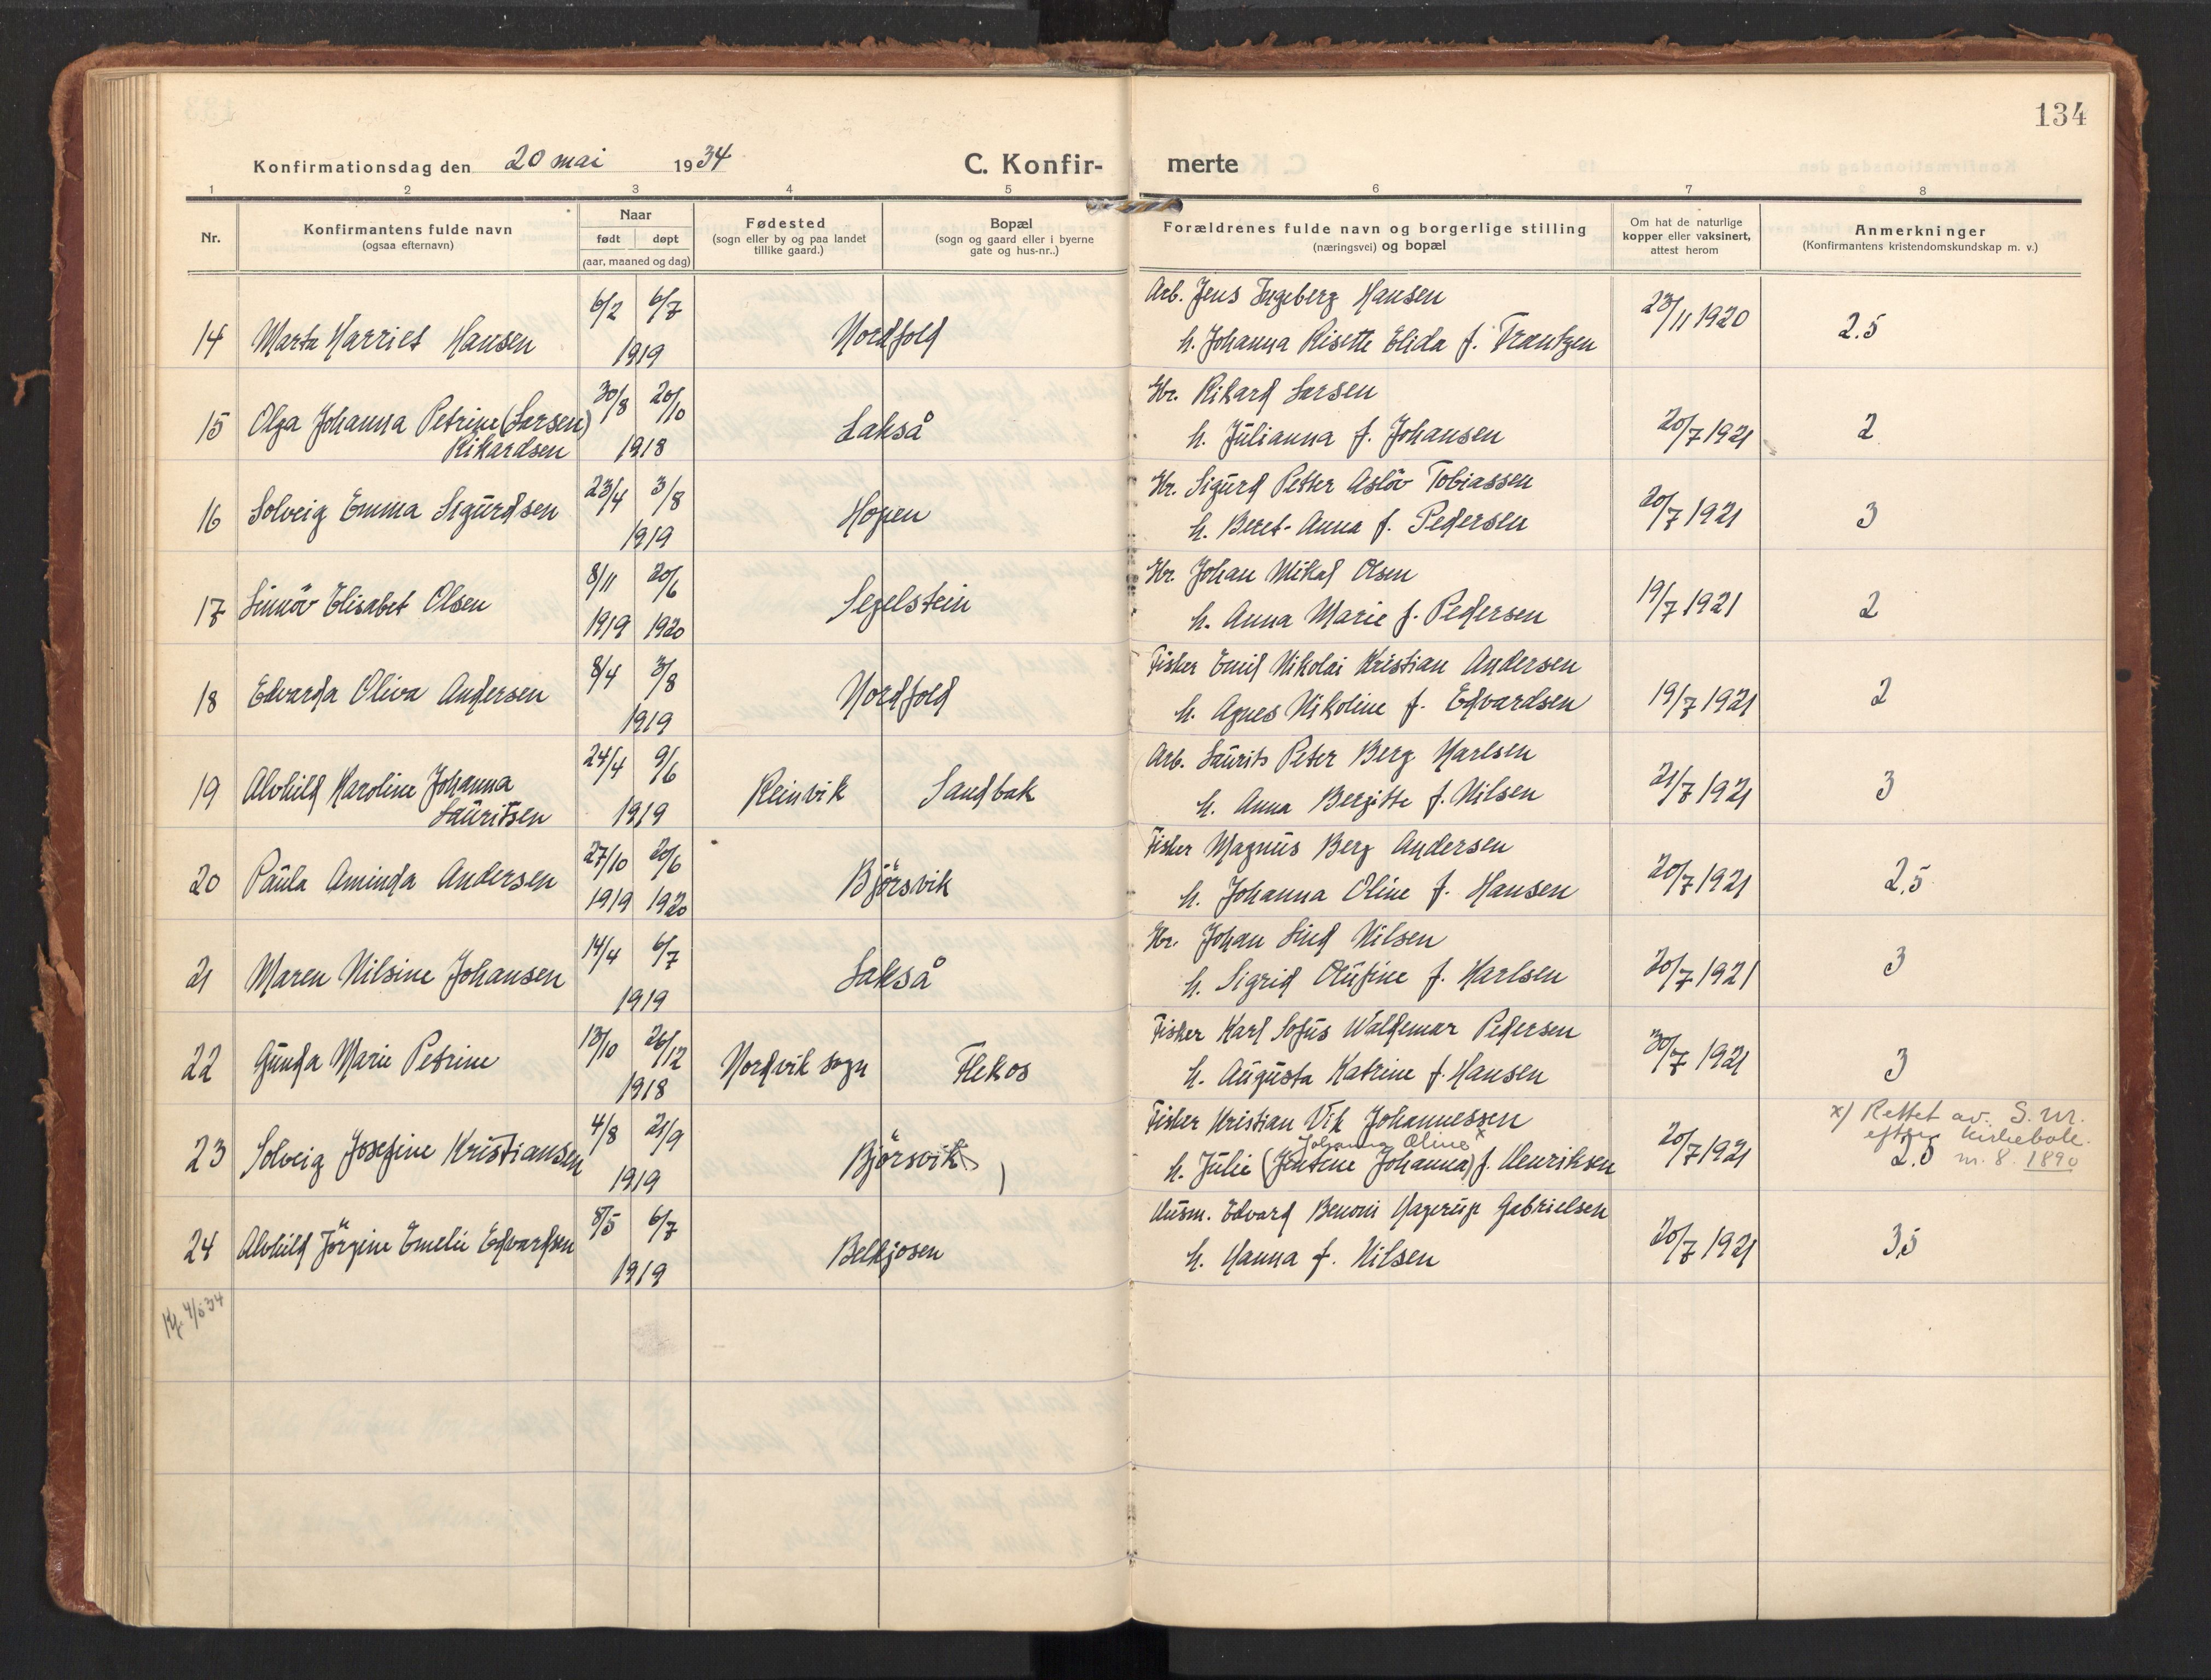 134
Konfirmationsdag den 20 mai 1934 C. Konfir- merte
1 2 3 4 5 6 7 8
Nr.
Konfirmantens fulde navn
(ogsaa efternavn)
Naar
født døpt
(aar, maaned og dag)
Fødested
(sogn eller by og paa landet
tillike gaard.)
Bopæl
(sogn og gaard eller i byerne
gate og hus-nr..)
Forældrenes fulde navn og borgerlige stilling
(næringsvei) og bopæl
Om hat de naturlige
kopper eller vaksinert,
attest herom
Anmerkninger
(Konfirmantens kristendomskundskap m. v.)
6/2 6/7 Arb. Jens Ingeberg Hansen
14 Marta Harriet Hansen 1919 Nordfold h. Johanna Risette Elida f. Frantzen 23/11 1920 2.5
30/8 20/10 Gbr. Rikard Larsen
15 Olga Johanna Petrine (Larsen) Lakså h. Julianna f. Johansen 20/7 1921 2
Rikardsen 1918
23/4 3/8 Gbr. Sigurd Petter Asløv Tobiassen
16 Solveig Emma Sigurdsen Hopen h. Beret-Anna f. Pedersen 20/7 1921 3
1919
8/11 20/6 Gbr. Johan Mikal Olsen
17 Sinnöv Elisabet Olsen Segelstein h. Anna Marie f. Pedersen 19/7 1921 2
1919 1920
8/4 3/8 Fisker Emil Nikolai Kristian Andersen
18 Edvarda Oliva Andersen Nordfold h. Agnes Nikoline f. Edvardsen 19/7 1921 2
1919
24/4 9/6 Arb. Laurits Peter Berg Karlsen
19 Alvhild Karoline Johanna Reinvik Sandbak h. Anna Bergitte f. Nilsen 21/7 1921 3
Lauritsen 1919
27/10 20/6 Fisker Magnus Berg Andersen
20 Paula Aminda Andersen Björsvik h. Johanna Oline f. Hansen 20/7 1921 2,5
1919 1920
14/4 6/7 Gbr. Johan Lind Nilsen
21 Maren Nilsine Johansen Lakså h. Sigrid Olufine f. Karlsen 20/7 1921 3
1919
13/10 26/12 Fisker Karl Sofus Waldemar Pedersen
22 Gunda Marie Petrine Nordvik sogn Flekos h. Augusta Katrine f. Hansen 30/7 1921 3
1918
4/8 21/9 Fisker Kristian Vik Johannessen x) Rettet av. S. M.
Johanna Oline x efter kirkebok.
23 Solveig Josefine Kristiansen Björsvik h. Julie (Jentine Johanna) f. Henriksen 20/7 1921 2.5 nr. 8. 1890
1919
8/5 6/7 Husm. Edvard Benoni Hagerup Gabrielsen
24 Alvhild Jörgine Emelie Edvardsen Belkjosen h. Hanna f. Nilsen 20/7 1921 3,5
1919